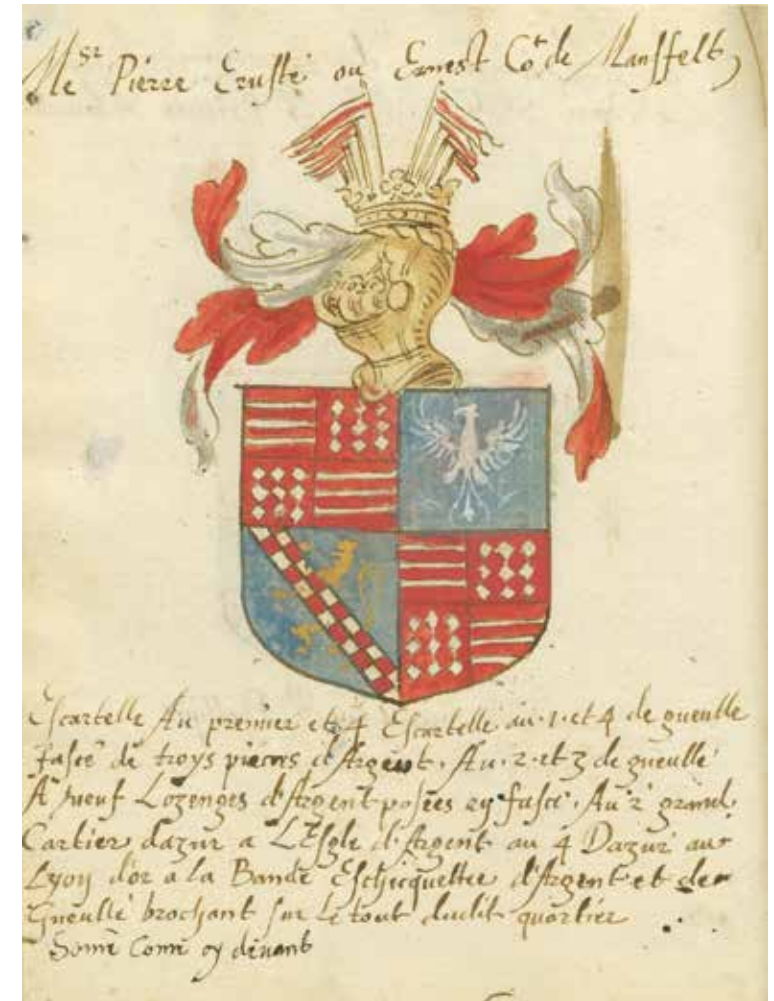 Me sr Pierre Ernste ou Ernest Cote de Mansfelt
Escartelle Au premier et 4 Escartelle au .1. et 4 de gueulle
fasce de troys pieces d'Argent. Au .2. et 3 de gueulle
A neuf Lozenges d'Argent posées en fasce. Au 2 grand
Cartier dazur a L'Esgle d'Argent au 4 Dazur au
Lyon d'or a la Bande Eschicquettee d'Argent et de
Gueulle brochant sur le tout dudit quartier
Some Come cy devant